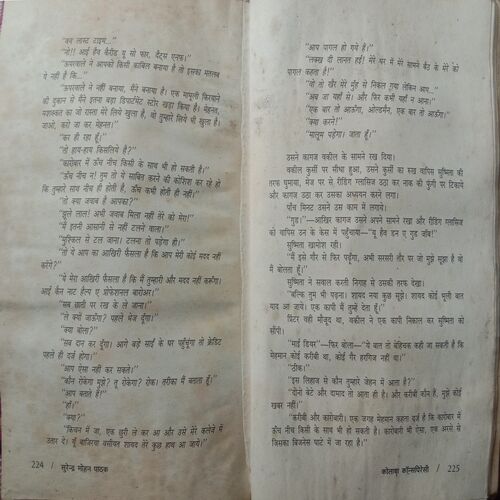 "क्या लास्ट टाइम..."
"नो!! आई हैव कैरीड यू सो फार, दैट्स एनफ।"
"ऊपरवाले ने आपको किसी काबिल बनाया है तो इसका मतलब
ये नहीं है कि..."
"ऊपरवाले ने नहीं बनाया, मैंने बनाया है। एक मामूली किरयाने
की दुकान से मैंने इतना बड़ा डिपार्टमेंट स्टोर खड़ा किया है। मेहनत,
मशक्कत का जो रास्ता मेरे लिये खुला है, वो तुम्हारे लिये भी खुला है।
जाओ, करो जा कर मेहनत।"
"कर ही रहा हूँ।"
"तो हाय-हाय किसलिये है?"
"कारोबार में ऊँच नीच किसी के साथ भी हो सकती है।"
"ऊँच नीच न! तुम तो ये साबित करने की कोशिश कर रहे हो
कि तुम्हारे साथ नीच ही होती है, ऊँच कभी होती ही नहीं।"
"तो क्या जवाब है आपका?"
"ढूले लाल! अभी जवाब मिला नहीं तेरे को मेरा!"
"मैं इतनी आसानी से नहीं टलने वाला।"
"मुश्किल से टल जाना। टलना तो पड़ेगा ही।"
"तो ये आप का आखिरी फैसला है कि आप मेरी कोई मदद नहीं
करेंगे?"
"ये मेरा आखिरी फैसला है कि मैं तुम्हारी और मदद नहीं करूँगा।
आई कैन नाट हैल्प ए प्रोफेशनल बारोअर।"
"सब छाती पर रख के ले जाना।"
"ले क्यों जाऊँगा? पहले भेज दूँगा।"
"क्या बोला?"
"सब दान कर दूँगा। आगे बड़े साईं के घर पहुँचूंगा तो क्रेडिट
पहले ही दर्ज होगा।"
"आप ऐसा नहीं कर सकते।"
"कौन रोकेगा मुझे? तू रोकेगा? रोक। तरीका मैं बताता हूँ।"
"आप बताते हैं!"
"हाँ।"
"क्या?"
"किचन में जा, एक छुरी ले कर आ और उसे मेरे कलेजे में
उतार दे। यूं बाजरिया वसीयत शायद तेरे कुछ हाथ आ जाये।"
224 / सुरेन्द्र मोहन पाठक
"आप पागल हो गये हैं।"
"लक्ख दी लानत हई। मेरे घर में मेरे सामने बैठ के मेरे को
पागल कहता है!"
"वो तो खैर मेरे मुंह से निकल गया लेकिन आप..."
"अब जा यहाँ से। और फिर कभी यहाँ न आना।"
"एक बार तो आऊँगा, ओल्डमैन, एक बार तो आऊँगा।"
"क्या करने!"
"मालूम पड़ेगा। जाता हूँ।"
उसने कागज वकील के सामने रख दिया।
वकील कुर्सी पर सीधा हुआ, उसने कुर्सी का रुख वापिस सुष्मिता की
तरफ घुमाया, मेज पर से रीडिंग ग्लासिज उठा कर नाक की फुंगी पर टिकाये
और कागज उठा कर उसका अध्ययन करने लगा।
पाँच मिनट उसने उस काम में लगाये।
"गुड।"—आखिर कागज उसने अपने सामने रखा और रीडिंग ग्लासिज
को वापिस उन के केस में पहुँचाया—"यू हैव डन ए गुड जॉब!"
सुष्मिता खामोश रही।
"मैं इसे गौर से फिर पढूँगा, अभी सरसरी तौर पर जो मुझे सूझा है वो
मैं बोलता हूँ।"
सुष्मिता ने सवाल करती निगाह से उसकी तरफ देखा।
"बल्कि तुम भी पढ़ना। शायद नया कुछ सूझे। शायद कोई भूली बात
याद आ जाये। एक कापी मैं तुम्हें देता हूँ।"
प्रिंटर वहीं मौजूद था, वकील ने एक कापी निकाल कर सुष्मिता को
सौंपी।
"माई डियर"—फिर बोला—"ये बात तो बेहिचक कही जा सकती है कि
मेहमान कोई करीबी था, कोई गैर हरगिज नहीं था।"
"ठीक।"
"इस लिहाज से कौन तुम्हारे जेहन में आता है?"
"दोनों बेटे और दामाद तो आता ही है। और करीबी कौन हैं, मुझे कोई
खबर नहीं।"
"करीबी और कारोबारी। एक जगह मेहमान कहता दर्ज है कि कारोबार में
ऊँच नीच किसी के साथ भी हो सकती है। कारोबारी भी ऐसा, एक अरसे से
जिसका बिजनेस घाटे में जा रहा है।"
कोलाबा कॉन्सपिरेसी / 225